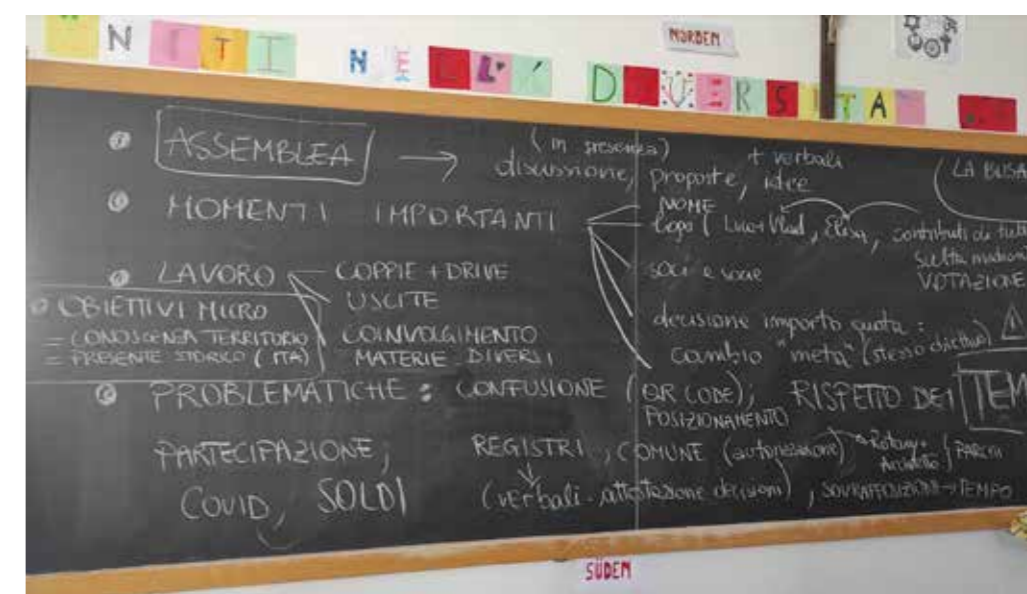 NORDEN
UNITI NELL'DIVERSITA'
ASSEMBLEA → (in presenza)
discussione, proposte, idee + verbali
LA BUSA
MOMENTI IMPORTANTI
NOME
logo (Luca+Vlad, Elisa, contributi di tutti
scelta
VOTAZIONE
soci e socie
decisione importo quota:
cambio "meta" (stesso obiettivo)
LAVORO
COPPIE + DRIVE
USCITE
COINVOLGIMENTO
MATERIE DIVERSI
OBIETTIVI MICRO
= CONOSCENZA TERRITORIO
= PRESENTE STORICO (ITA)
PROBLEMATICHE: CONFUSIONE (QR CODE); RISPETTO DEI TEM
POSIZIONAMENTO
PARTECIPAZIONE,
COVID, SOLDI
REGISTRI, COMUNE (autorizzazione) Rotary+
Architetto
(verbali-attestazione decisioni), SOVRAPPOSIZIONI → TEMPO
SÜDEN